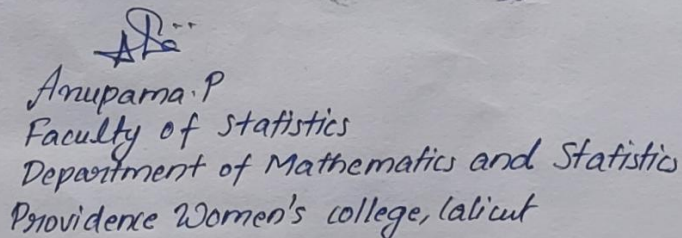 Anupama. P
Faculty of Statistics
Department of Mathematics and Statistics
Providence Women's college, Calicut